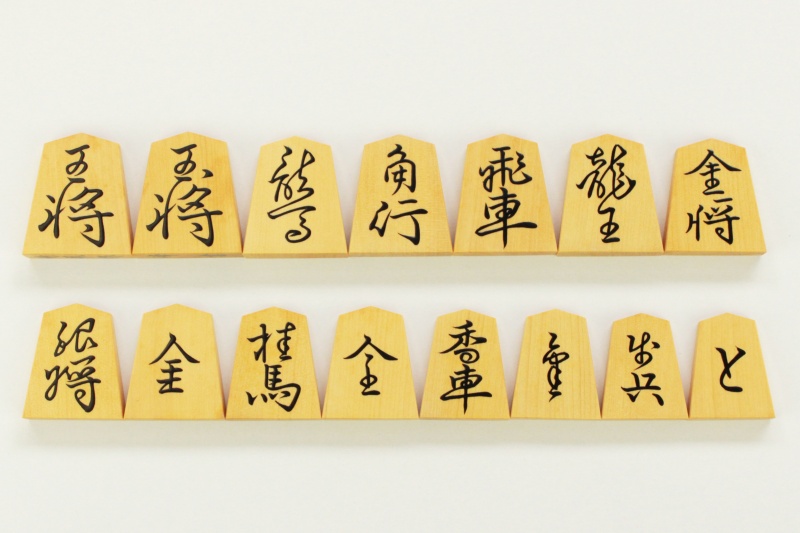 王将 玉将 龍馬 角行 飛車 龍王 金将
銀将 全 桂馬 全 香車 金 歩兵 と